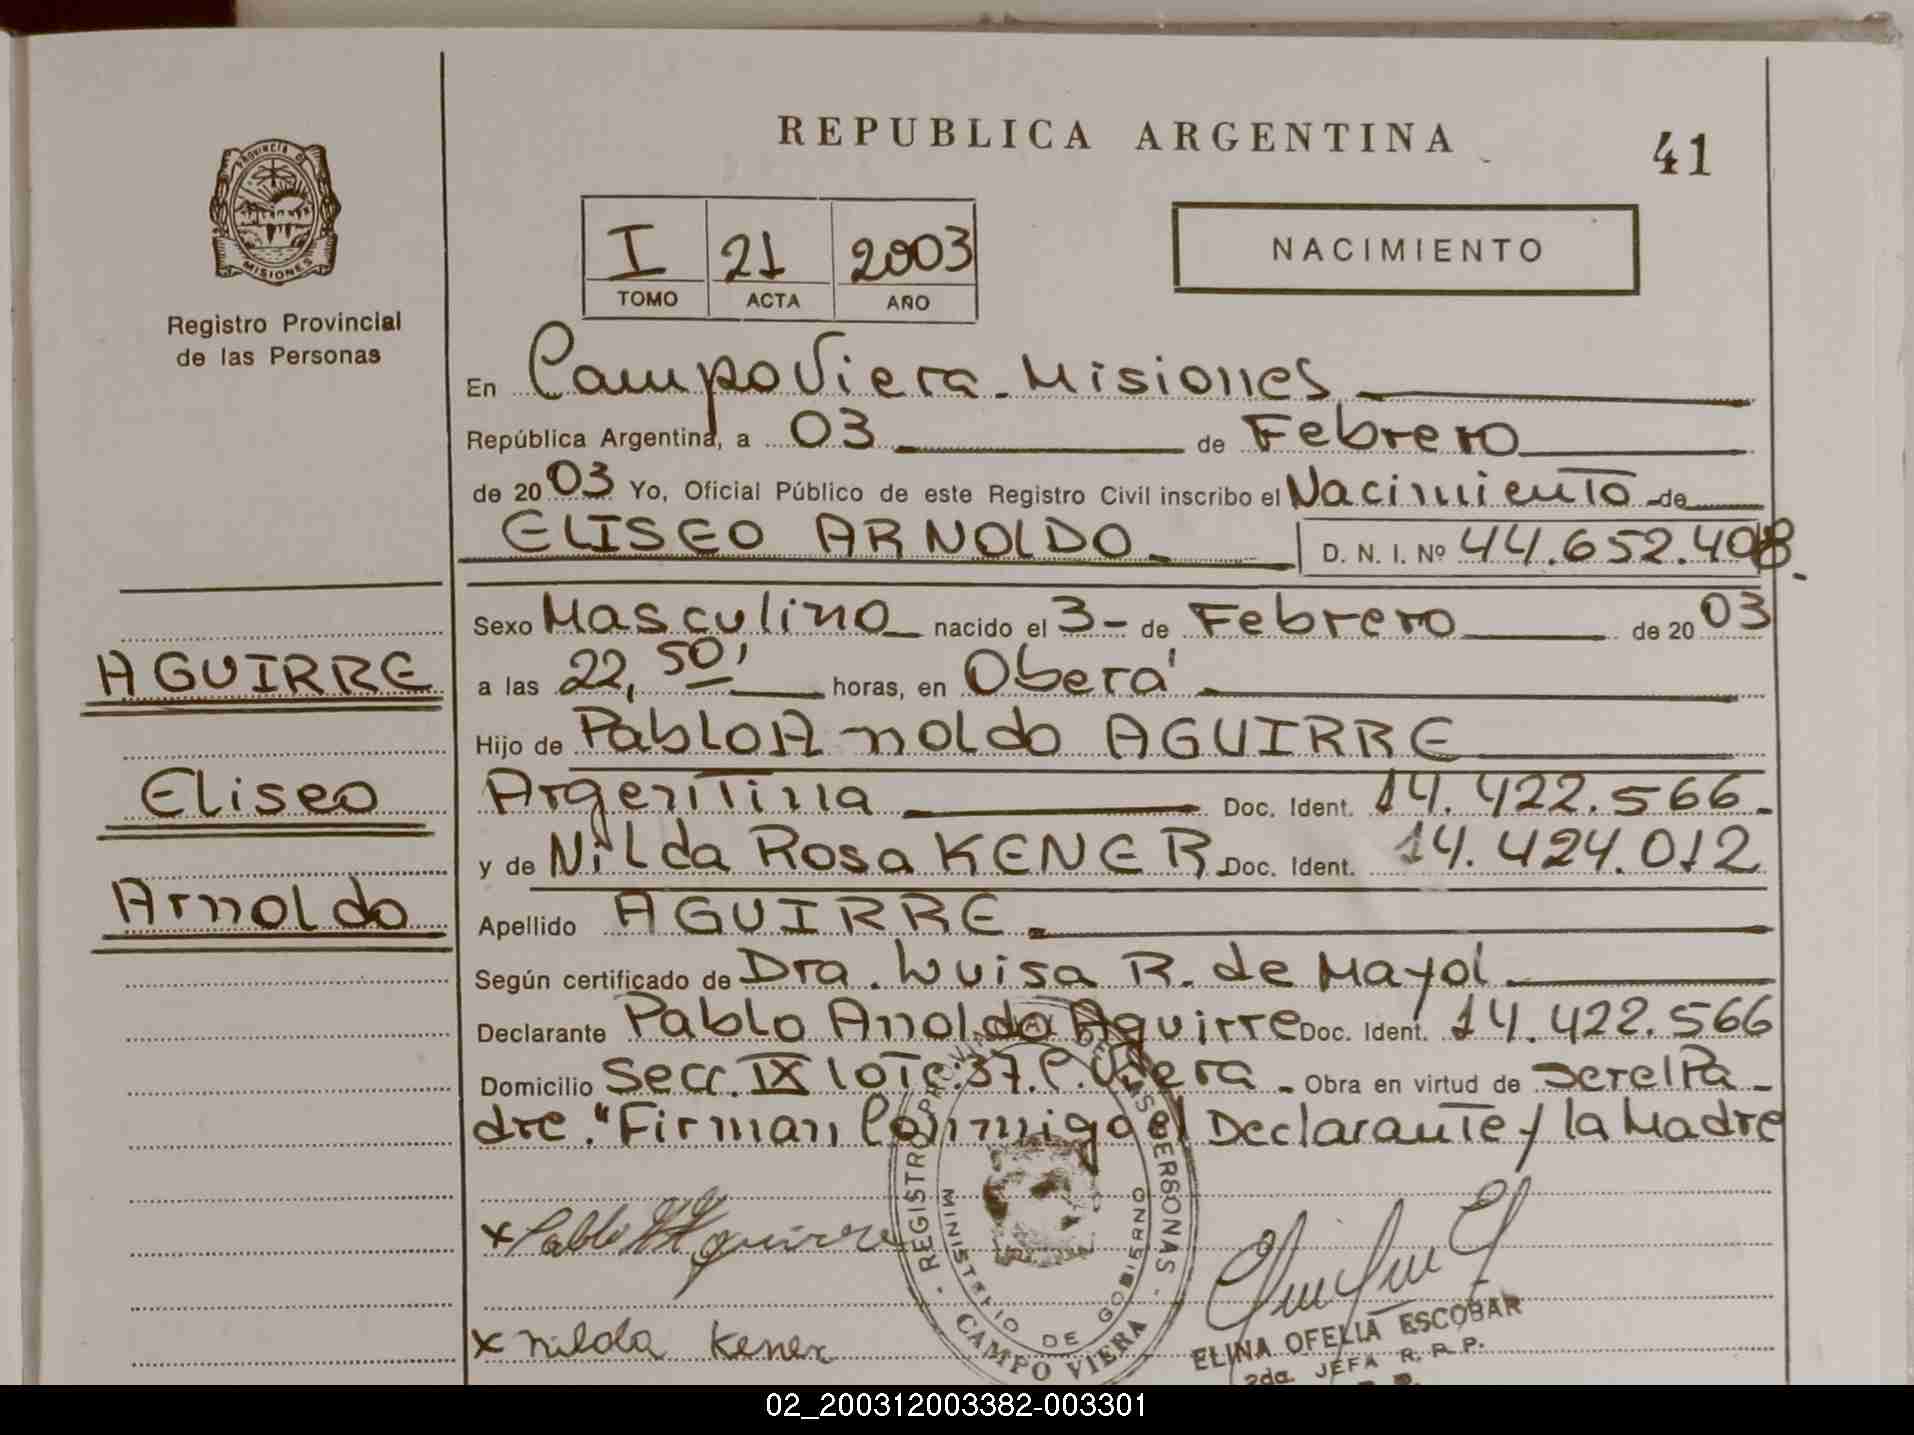 REPUBLICA ARGENTINA
41
PROVINCIA D
MISIONES
Registro Provincial
de las Personas
I 21 2003
TOMO ACTA AÑO
NACIMIENTO
En Campo Viera - Misiones
República Argentina, a 03 de Febrero
de 2003 Yo, Oficial Público de este Registro Civil inscribo el Nacimiento de
ELISEO ARNOLDO D. N. I. Nº 44.652.408.
Sexo Masculino nacido el 3 - de Febrero de 2003
AGUIRRE
a las 22,50' horas, en Oberá
Hijo de Pablo Anoldo AGUIRRE
Eliseo
Argentina Doc. Ident. 14.422.566.
y de Nilda Rosa KENER Doc. Ident. 14.424.012
Arnoldo
Apellido AGUIRRE
Según certificado de Dra. Luisa R. de Mayol
Declarante Pablo Anoldo Aguirre Doc. Ident. 14.422.566
Domicilio Secc. IX lote. 37. C. Viera - Obra en virtud de serelPa-
dre. "Firman Conmigo el Declarante y la Madre
x Pablo A Aguirre
x nilda Kener
REGISTRO PROVINCIAL DE LAS PERSONAS
MINISTERIO DE GOBIERNO
CAMPO VIERA
ELINA OFELIA ESCOBAR
2da. JEFA R. P. P.
02_200312003382-003301